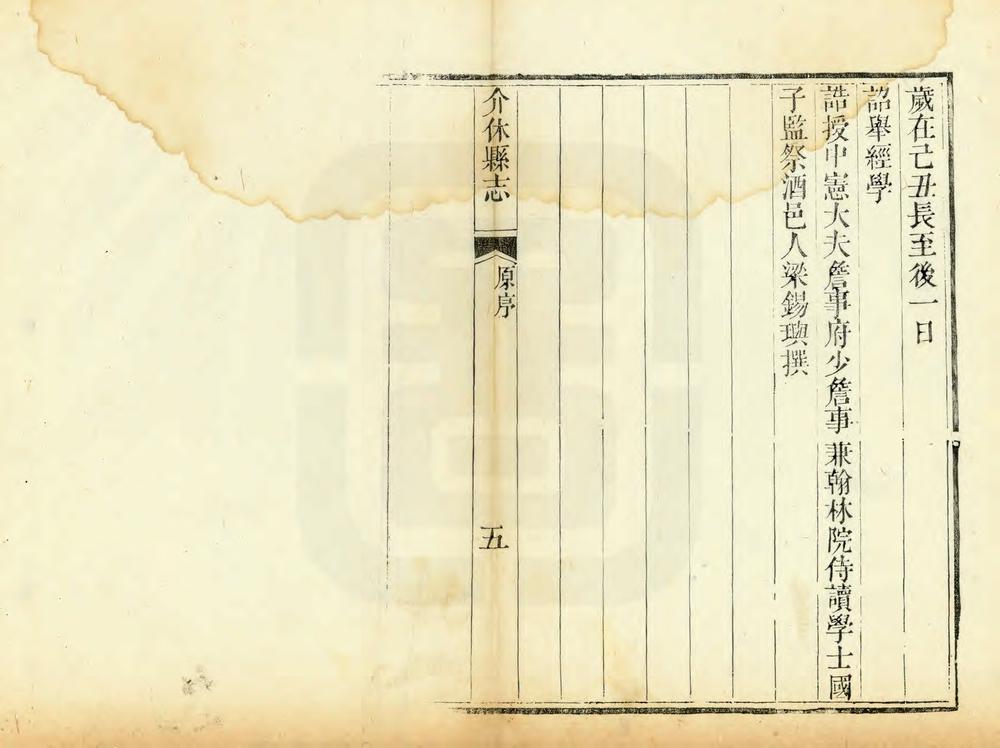 歲在己丑長至後一日
詔舉經學
誥授中憲大夫詹事府少詹事兼翰林院侍讀學士國
子監祭酒邑人梁錫璵撰
介休縣志
原序
五